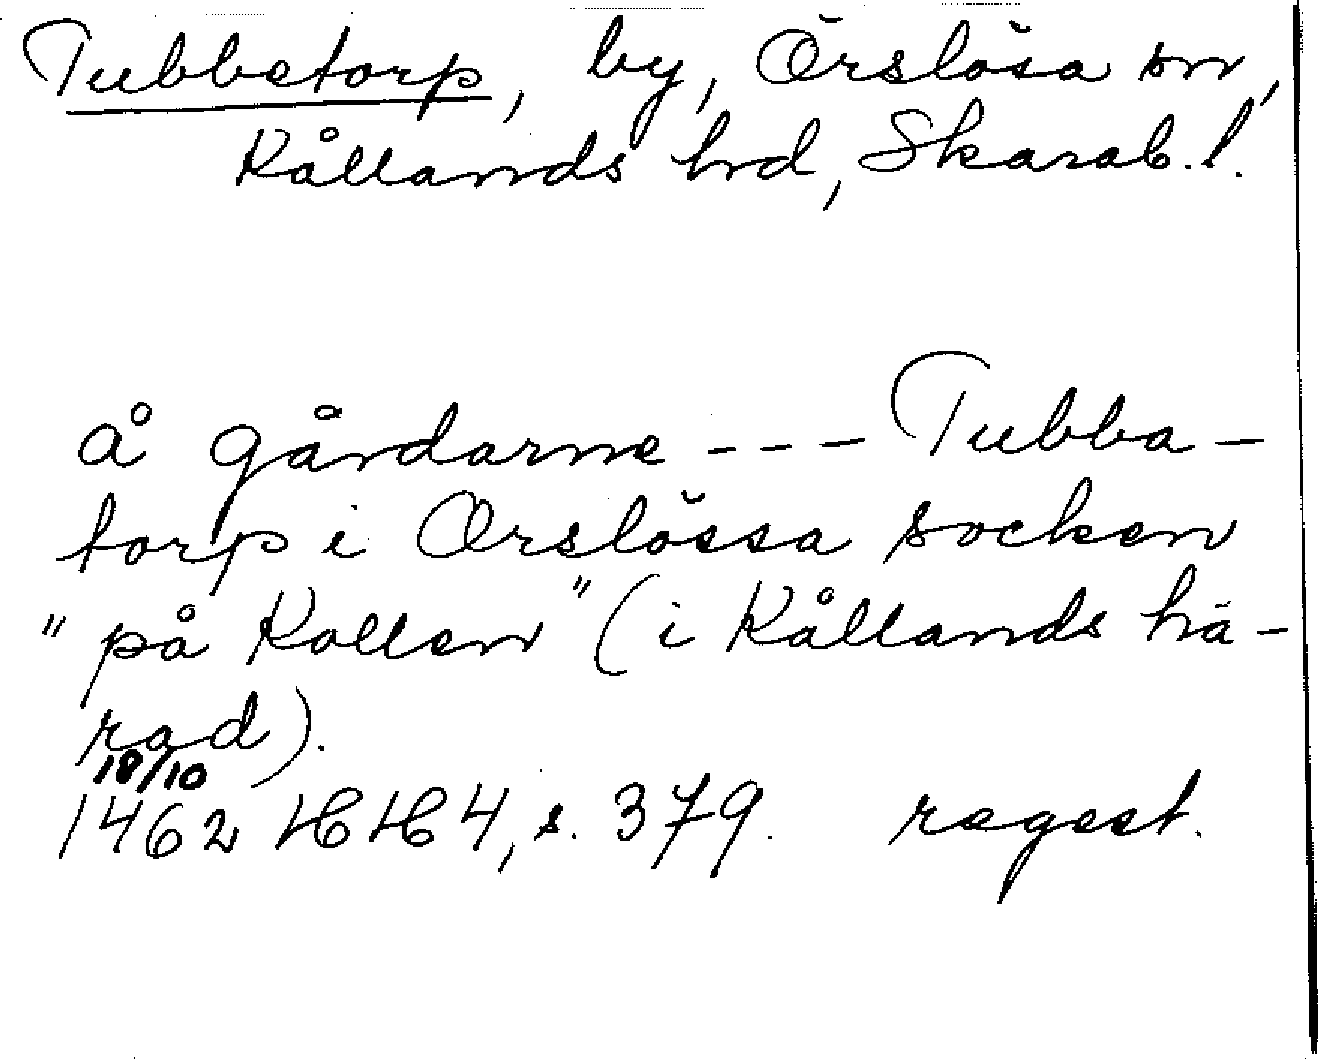 Tubbetorp, by, Örslösa sn,
Kållands hd, Skarab. l.
å gårdarne --- Tubba-
torp i Örslössa socken
"på Kollen" (i Kållands hä-
rad).
18/10
1462 HH 4, s. 379. regest.